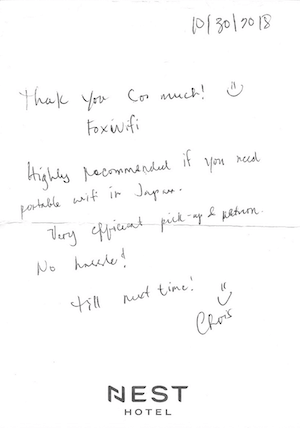 10/30/2018
Thak you so much!
Foxwifi
Highly Recommended if you need
portable wifi in Japan.
Very efficient pick-up & return
No hassle!
till next time!
NEST
HOTEL